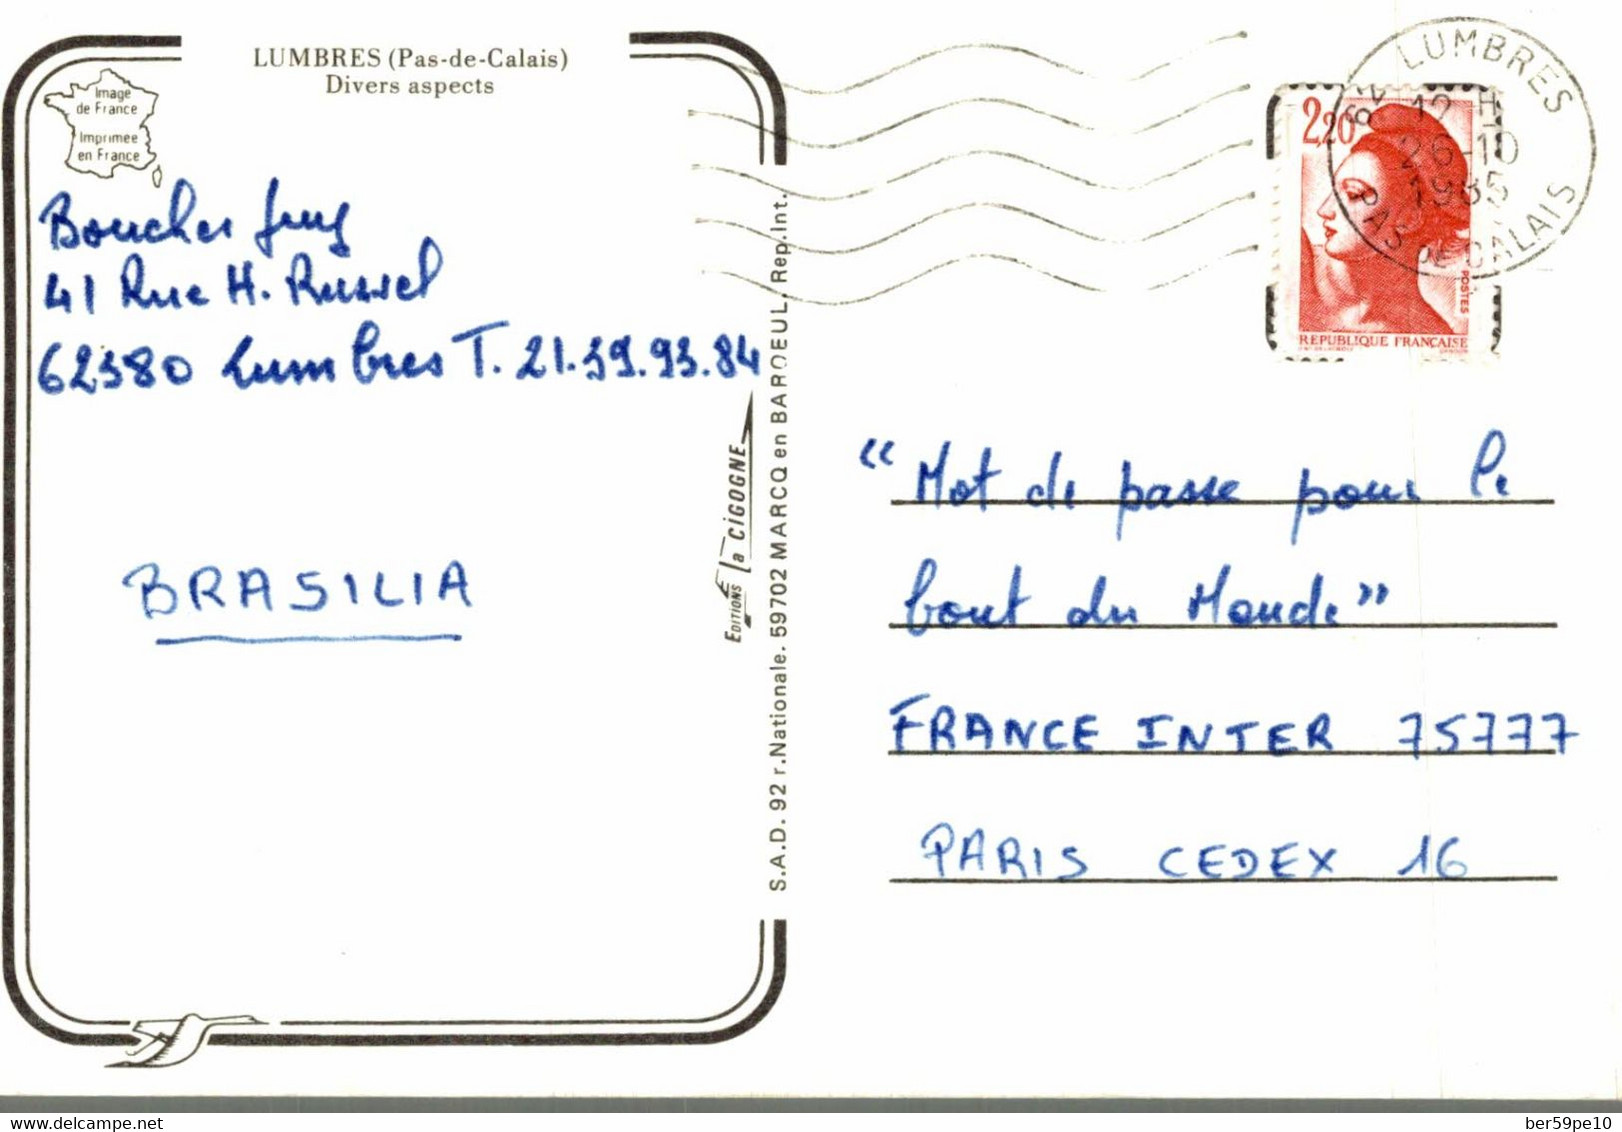 LUMBRES (Pas-de-Calais)
Divers aspects
Image
de France
Imprimée
en France
Boucher
41 Rue H. Russel
62380 Lumbres T. 21.39.93.84
BRASILIA
EDITIONS La CIGOGNE
S.A.D. 92 r. Nationale. 59702 MARCQ en BAROEUL. Rep. Int.
62 LUMBRES
12 H
26-10
1985
PAS DE CALAIS
2,20
POSTES
REPUBLIQUE FRANÇAISE
"Mot de passe pour le
bout du Monde"
FRANCE INTER 75777
PARIS CEDEX 16
delcampe.net
ber59pe10